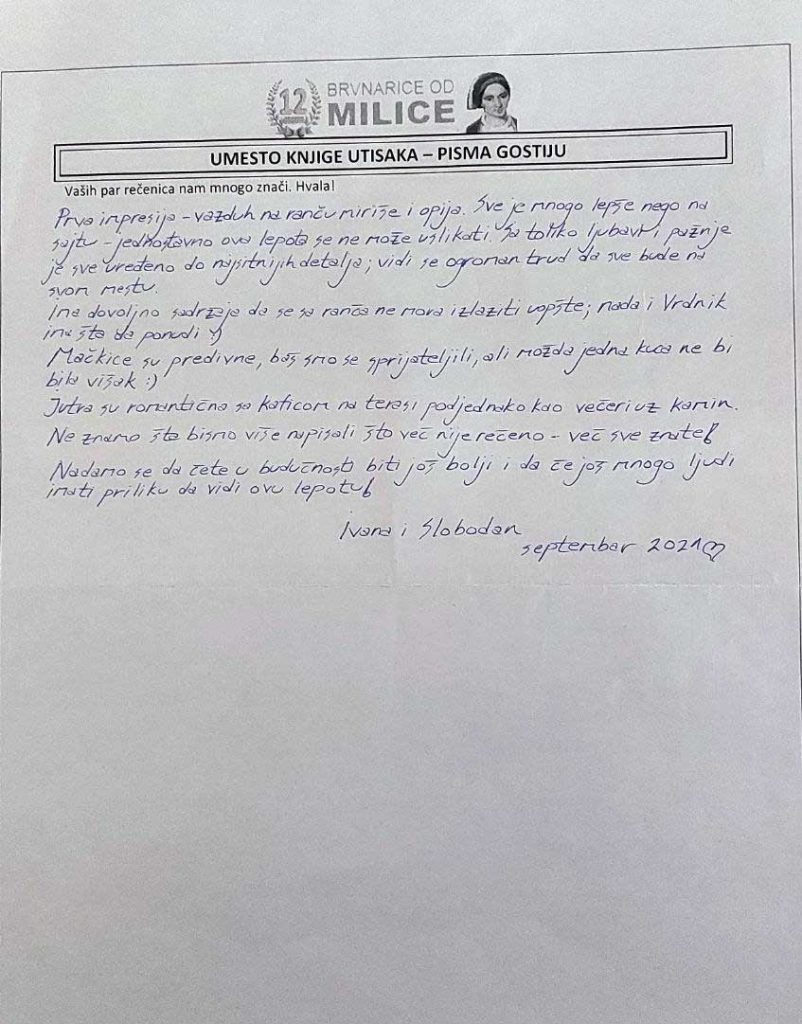 12
BRVNARICE OD
MILICE
UMESTO KNJIGE UTISAKA – PISMA GOSTIJU
Vaših par rečenica nam mnogo znači. Hvala!
Prva impresija - vazduh na ranču miriše i opija. Sve je mnogo lepše nego na
sajtu - jednostavno ova lepota se ne može uslikati. Sa toliko ljubavi i pažnje
je sve uređeno do najsitnijih detalja; vidi se ogroman trud da sve bude na
svom mestu.
Ima dovoljno sadržaja da se sa ranča ne mora izlaziti uopšte; mada i Vrdnik
ima šta da ponudi :)
Mačkice su predivne, baš smo se sprijateljili, ali možda jedna kuca ne bi
bila višak :)
Jutra su romantična sa kaficom na terasi podjednako kao večeri uz kamin.
Ne znamo šta bismo više napisali što već nije rečeno - već sve znate!
Nadamo se da ćete u budućnosti biti još bolji i da će još mnogo ljudi
imati priliku da vidi ovu lepotu!
Ivana i Slobodan
septembar 2021♡